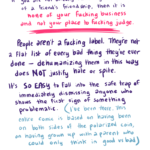 in a friend's friendship, then it is
none of your fucking business
and not your place to fucking judge.
People aren't a fucking label. They're not
a flat list of every bad thing they've ever
done - dehumanizing them in this way
does NOT justify hate or spite.
It's SO EASY to fall into the safe trap of
immediately dismissing anyone who
shows the first sign of something
problematic. (I've been there, this
entire comic is based on having been
on both sides of the polarized coin,
as having grown up with a parent who
could only think in good or bad)